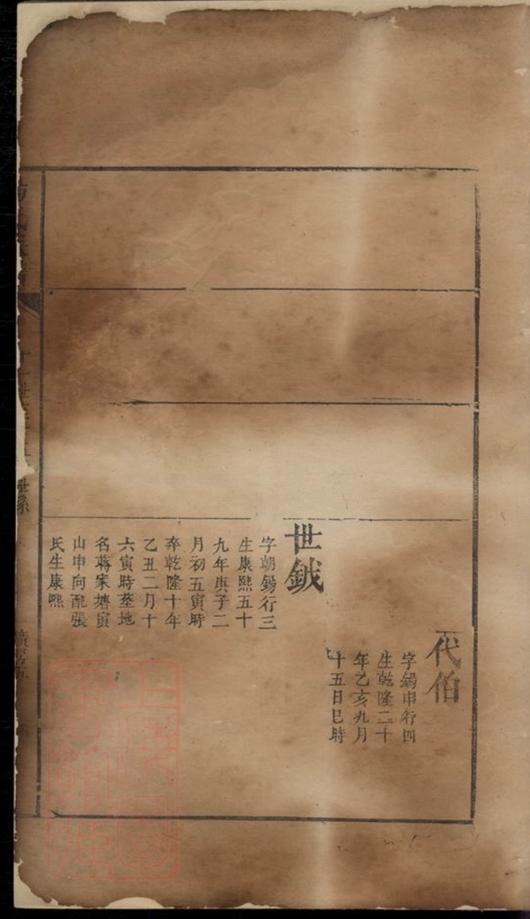 代伯
字錫申行四
生乾隆二十
年乙亥九月
十五日巳時
世鉞
字朝錫行三
生康熙五十
九年庚子二
月初五寅時
卒乾隆十年
乙丑二月十
六寅時墓地
名蔣家塘寅
山申向配張
氏生康熙
世系